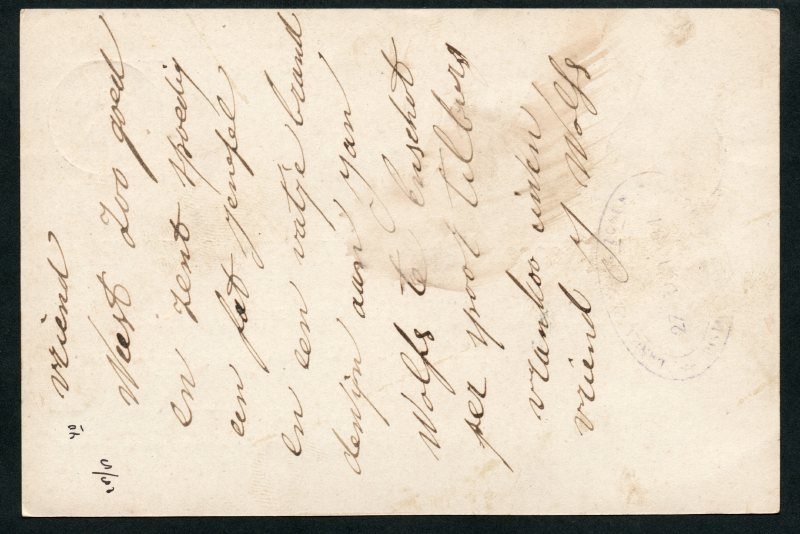 vriend
Weest zoo goed
en zent spoedig
een fat jenefel
en een vatje brand
dewijn aan Jan
Wolfs te Enschot
per spoor tilburg
vranko uwen
vriend J Wolfs